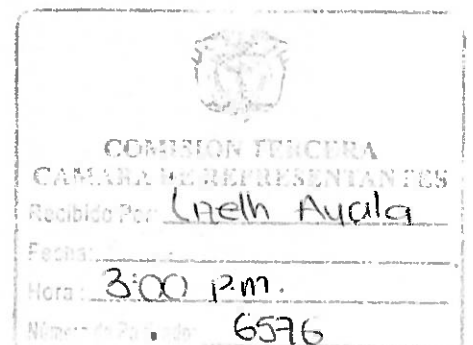 COMISION TERCERA
CAMARA DE REPRESENTANTES
Recibido Por: Lizeth Ayala
Fecha:
Hora: 3:00 p.m.
Número de Radicado: 6576